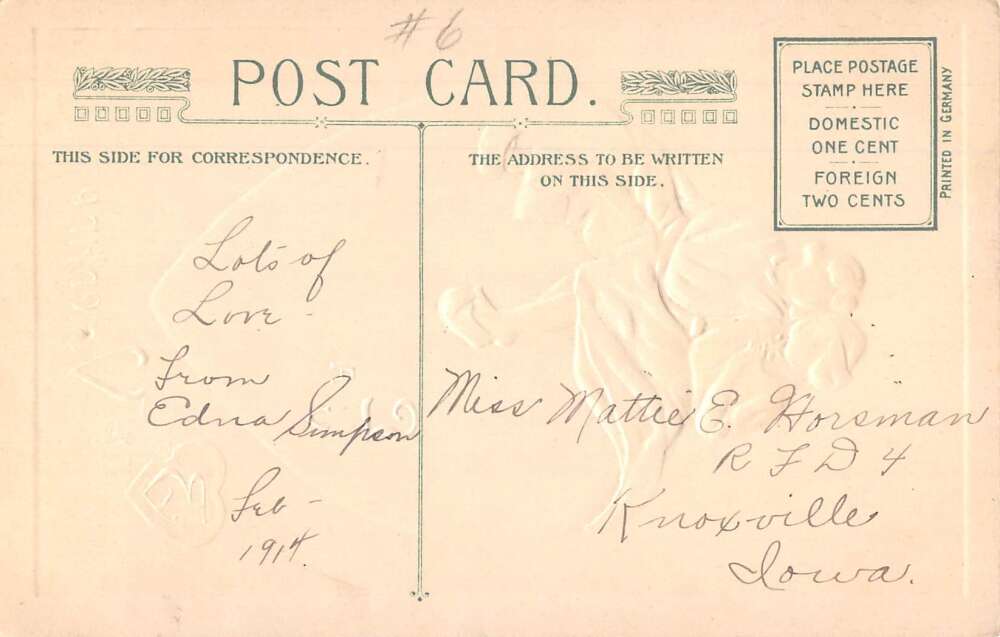 #6
POST CARD.
THIS SIDE FOR CORRESPONDENCE.
THE ADDRESS TO BE WRITTEN
ON THIS SIDE.
PLACE POSTAGE
STAMP HERE
DOMESTIC
ONE CENT
FOREIGN
TWO CENTS
PRINTED IN GERMANY
Lots of
Love -
From
Edna Simpson
Feb -
1914.
Miss Mattie E. Horsman
R F D 4
Knoxville
Iowa.